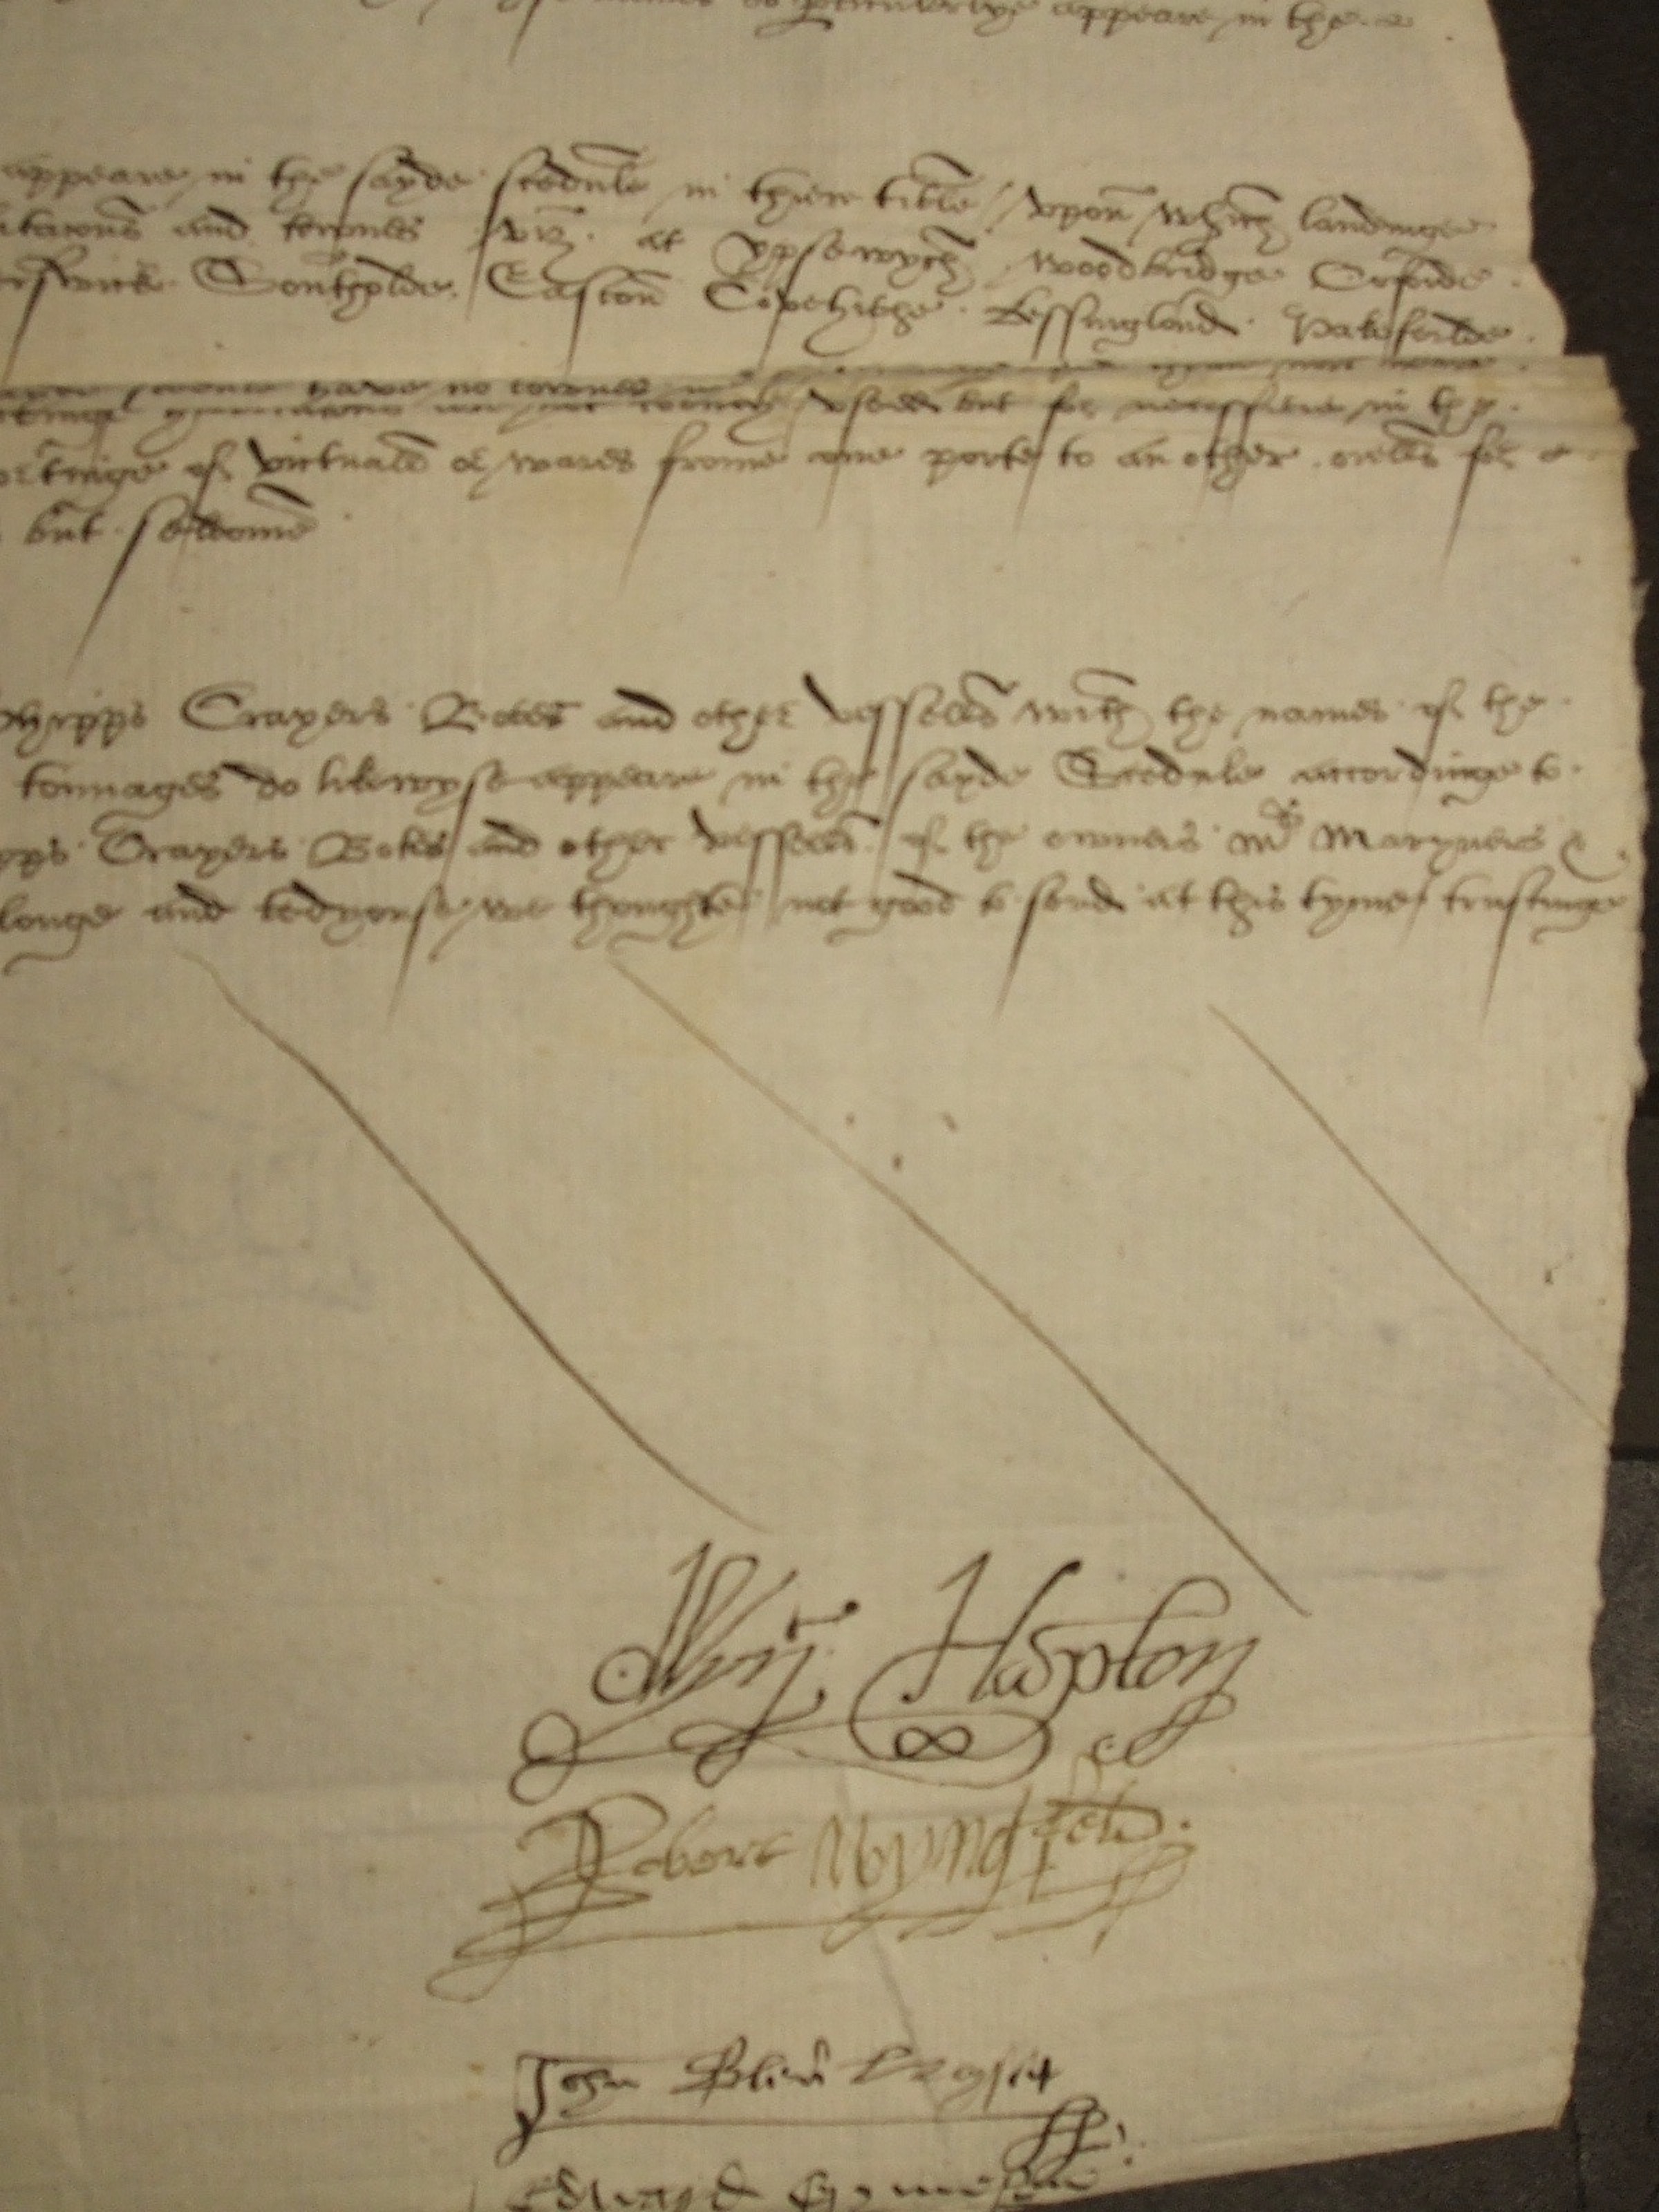 do perticulerlye appeare in the
appeare in the sayde scedule in their title / vpon which landinge
itacons and townes viz. at ypsewych woodbridge Orforde .
Southolde . Easton Covehithe . kessingland . Pakefeilde .
have no townes
vsed but for necessitie in the
ortinge of victuall or wares frome one porte to an other . orells for
but seldome
shyppes Crayers Botes and other vessells with the names of the
tonnages do likewyse appeare in the sayde Scedule accordinge to
pps Crayers Botes and other vessells of the owners mrs Maryners &
longe and tedyouse we thoughte not good to send at this tyme trustinge
Hopton
Robert Wyngfeld .
John Blen
Edward